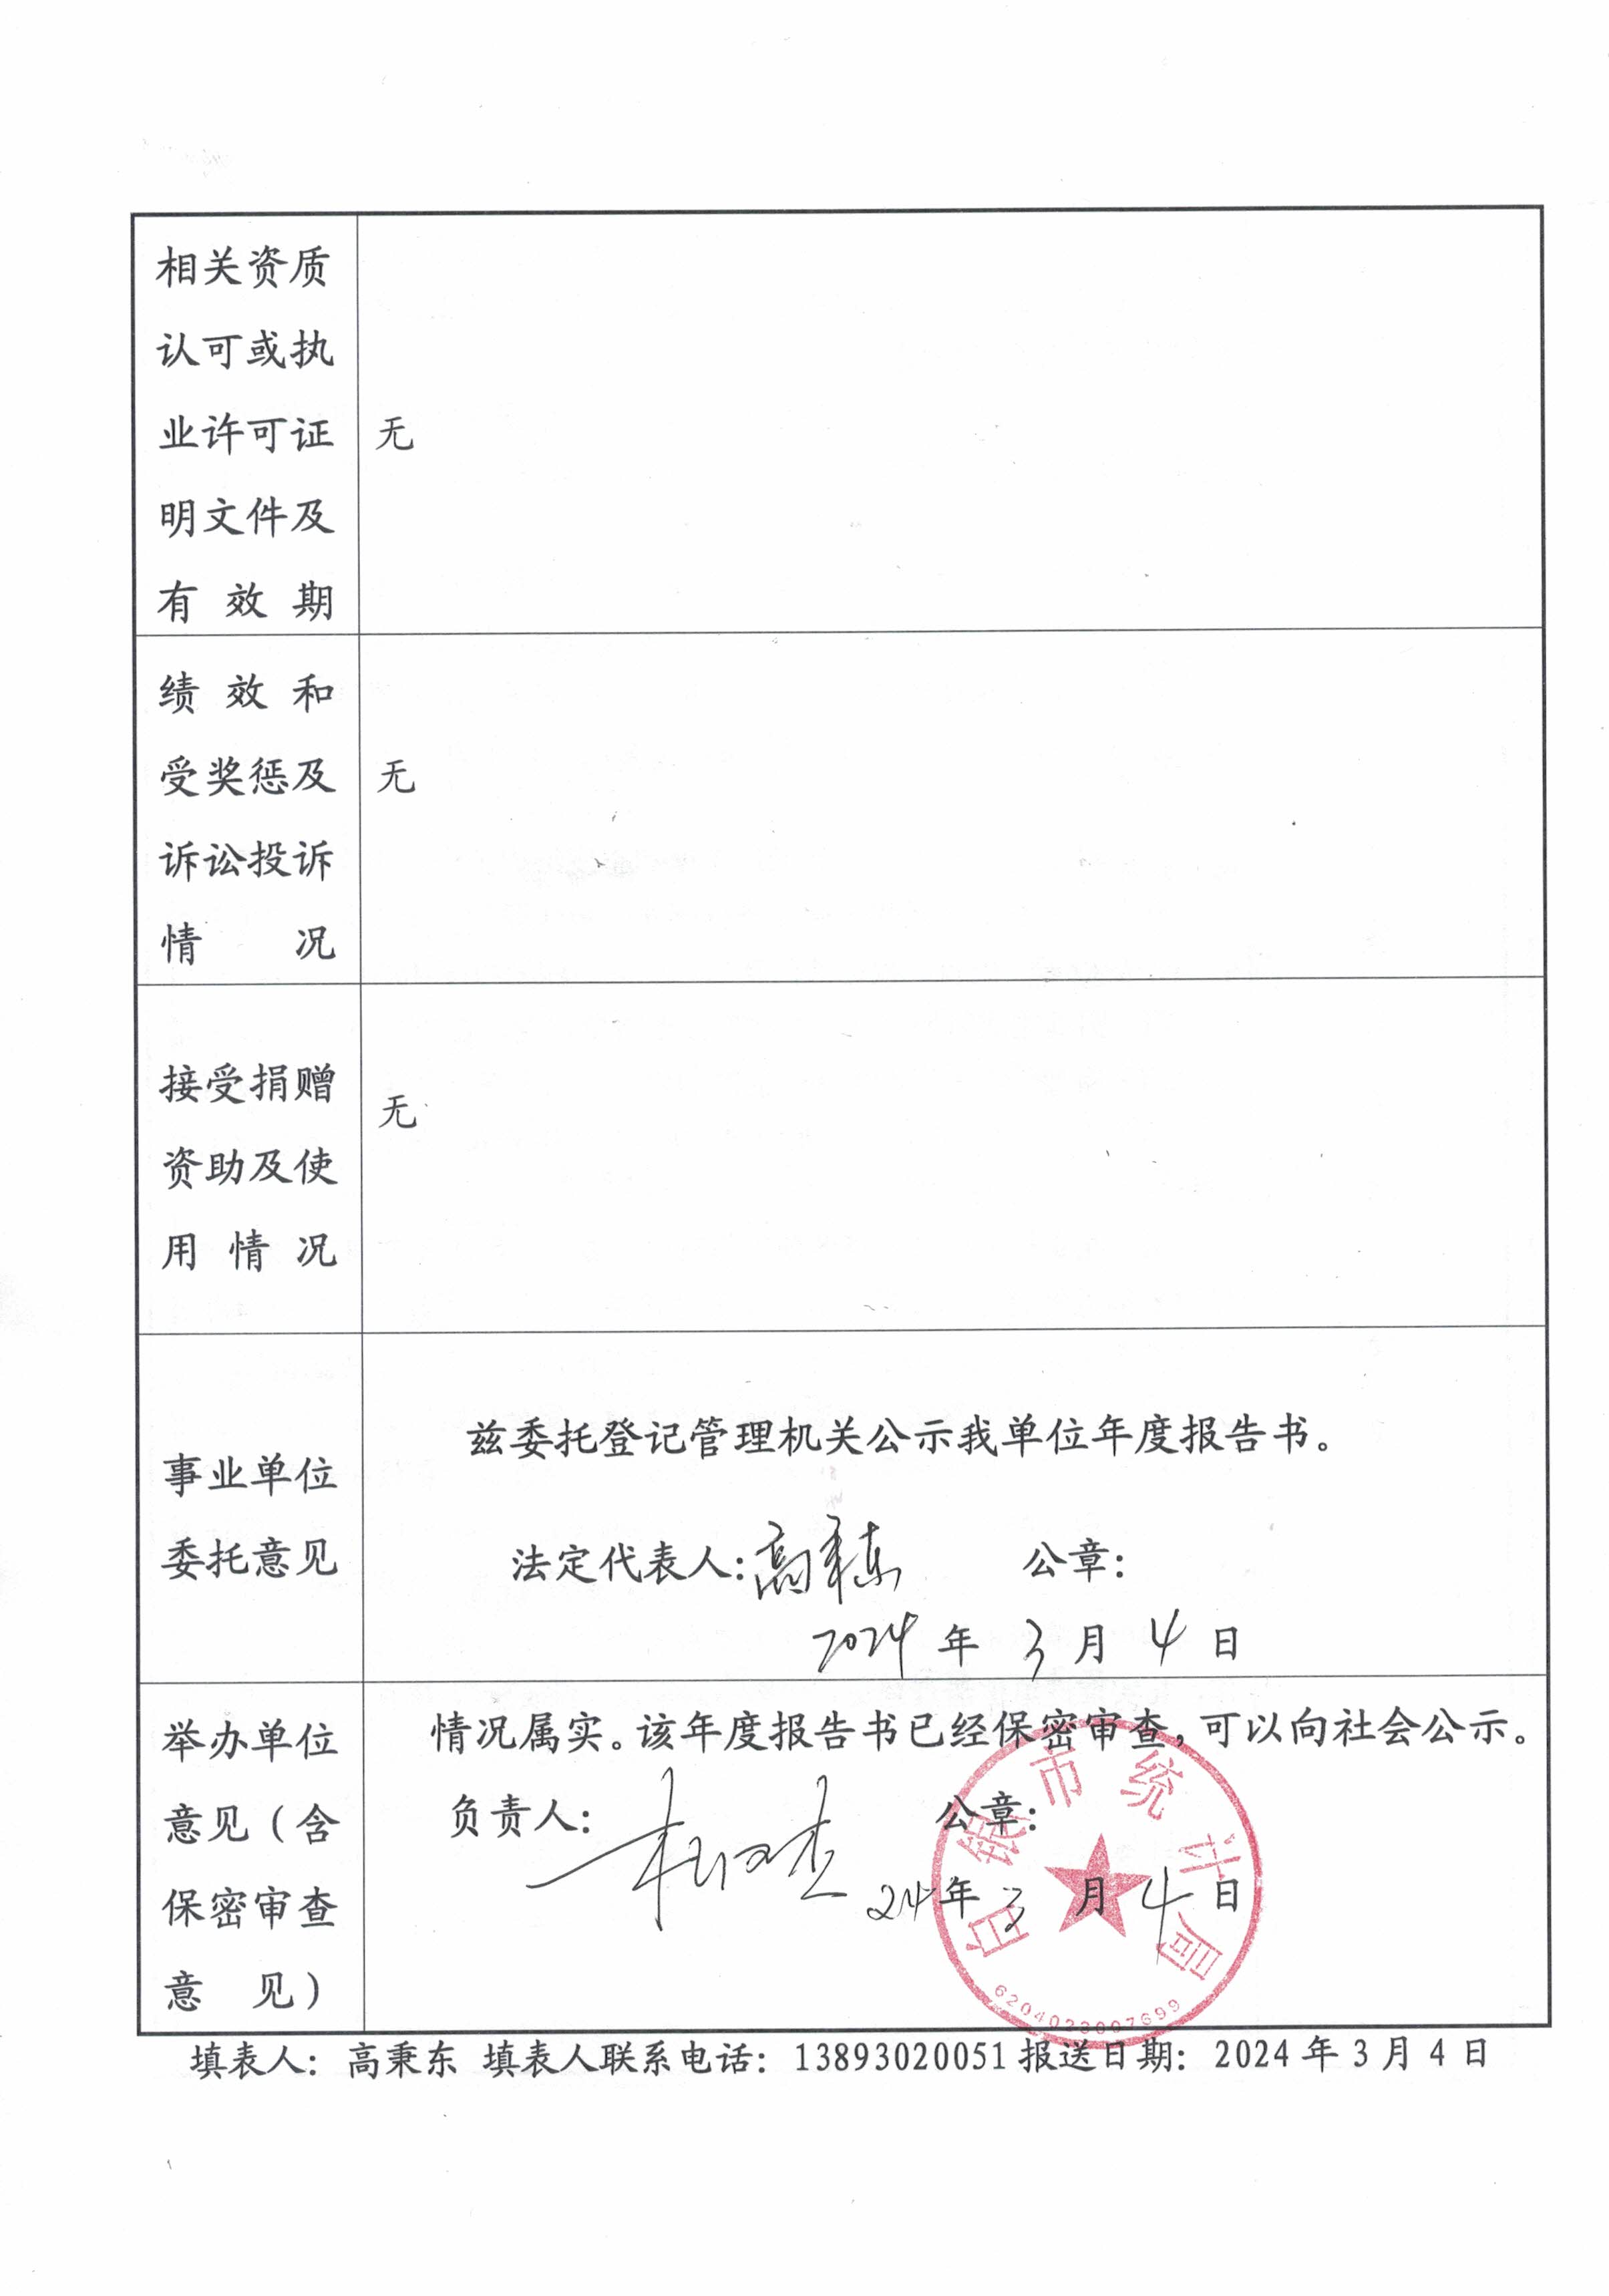 相关资质
认可或执
业许可证
明文件及
有效期
无
绩效和
受奖惩及
诉讼投诉
情况
无
接受捐赠
资助及使
用情况
无
事业单位
委托意见
兹委托登记管理机关公示我单位年度报告书。
法定代表人：高秉东 公章：
2024 年 3 月 4 日
举办单位
意见（含
保密审查
意见）
情况属实。该年度报告书已经保密审查，可以向社会公示。
负责人： 公章：
24 年 3 月 4 日
白银市统计局
6204023007699
填表人：高秉东 填表人联系电话：13893020051 报送日期：2024 年 3 月 4 日